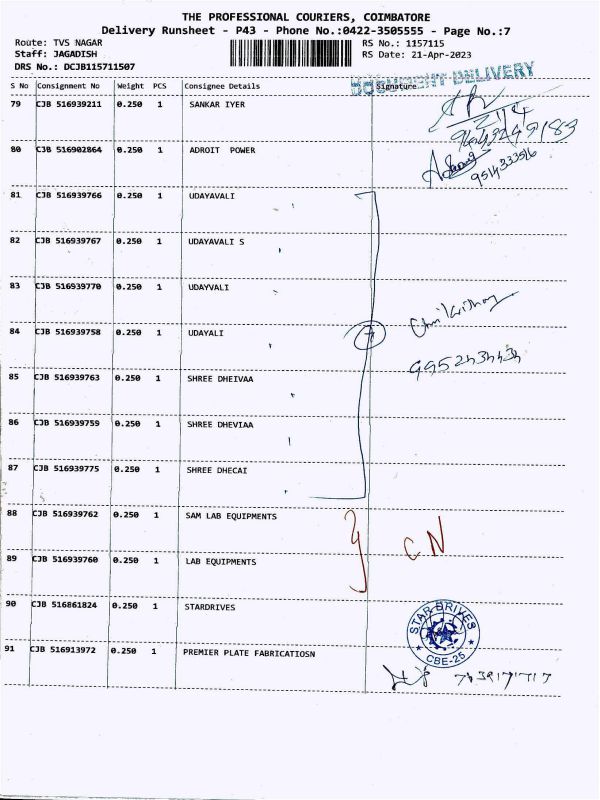 THE PROFESSIONAL COURIERS, COIMBATORE
Delivery Runsheet - P43 - Phone No.:0422-3505555 - Page No.:7
Route: TVS NAGAR
Staff: JAGADISH
DRS No.: DCJB115711507
RS No.: 1157115
RS Date: 21-Apr-2023
DOCUMENT DELIVERY
S No Consignment No Weight PCS Consignee Details Signature
79 CJB 516939211 0.250 1 SANKAR IYER
80 CJB 516902864 0.250 1 ADROIT POWER
81 CJB 516939766 0.250 1 UDAYAVALI
82 CJB 516939767 0.250 1 UDAYAVALI S
83 CJB 516939770 0.250 1 UDAYVALI
84 CJB 516939758 0.250 1 UDAYALI
7
85 CJB 516939763 0.250 1 SHREE DHEIVAA
86 CJB 516939759 0.250 1 SHREE DHEVIAA
87 CJB 516939775 0.250 1 SHREE DHECAI
88 CJB 516939762 0.250 1 SAM LAB EQUIPMENTS
CN
89 CJB 516939760 0.250 1 LAB EQUIPMENTS
90 CJB 516861824 0.250 1 STARDRIVES
STAR DRIVES
CBE-25
91 CJB 516913972 0.250 1 PREMIER PLATE FABRICATIOSN